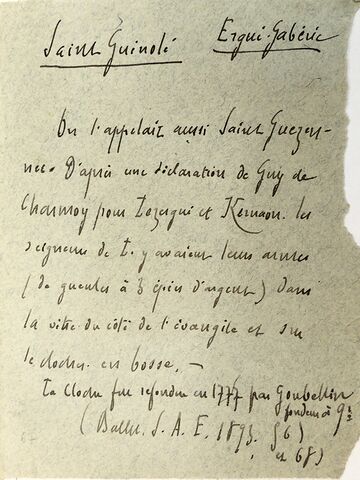 Saint Guinolé Ergué-Gabéric
On l'appelait aussi Saint Guezen-
nec. D'après une déclaration de Guy de
Charmoy pour Lezergué et Kernaon. les
seigneurs de L. y avaient leurs armes
(de gueules à 3 épées d'argent) dans
la vitre du côté de l'évangile et sur
le clocher en bosse. —
La cloche fut refondue en 1777 par Goubellin
fondeur à
(Bullet. S. A. F. 1893. 66)
et 68)